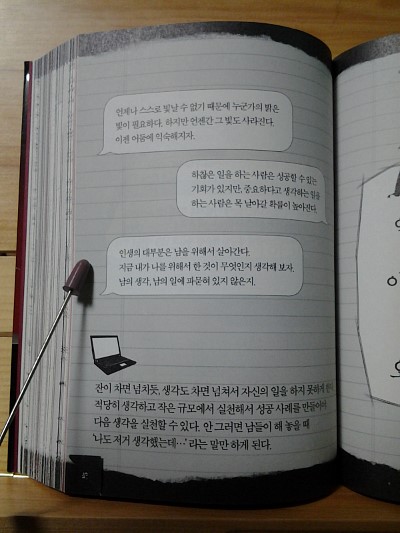 언제나 스스로 빛날 수 없기 때문에 누군가의 밝은
빛이 필요하다. 하지만 언젠간 그 빛도 사라진다.
이젠 어둠에 익숙해지자.
하찮은 일을 하는 사람은 성공할 수 있는
기회가 있지만, 중요하다고 생각하는 일을
하는 사람은 목 날아갈 확률이 높아진다.
인생의 대부분은 남을 위해서 살아간다.
지금 내가 나를 위해서 한 것이 무엇인지 생각해 보자.
남의 생각, 남의 일에 파묻혀 있지 않은지.
잔이 차면 넘치듯, 생각도 차면 넘쳐서 자신의 일을 하지 못하게
적당히 생각하고 작은 규모에서 실천해서 성공 사례를 만들어야
다음 생각을 실천할 수 있다. 안 그러면 남들이 해 놓을 때
'나도 저거 생각했는데…'라는 말만 하게 된다.